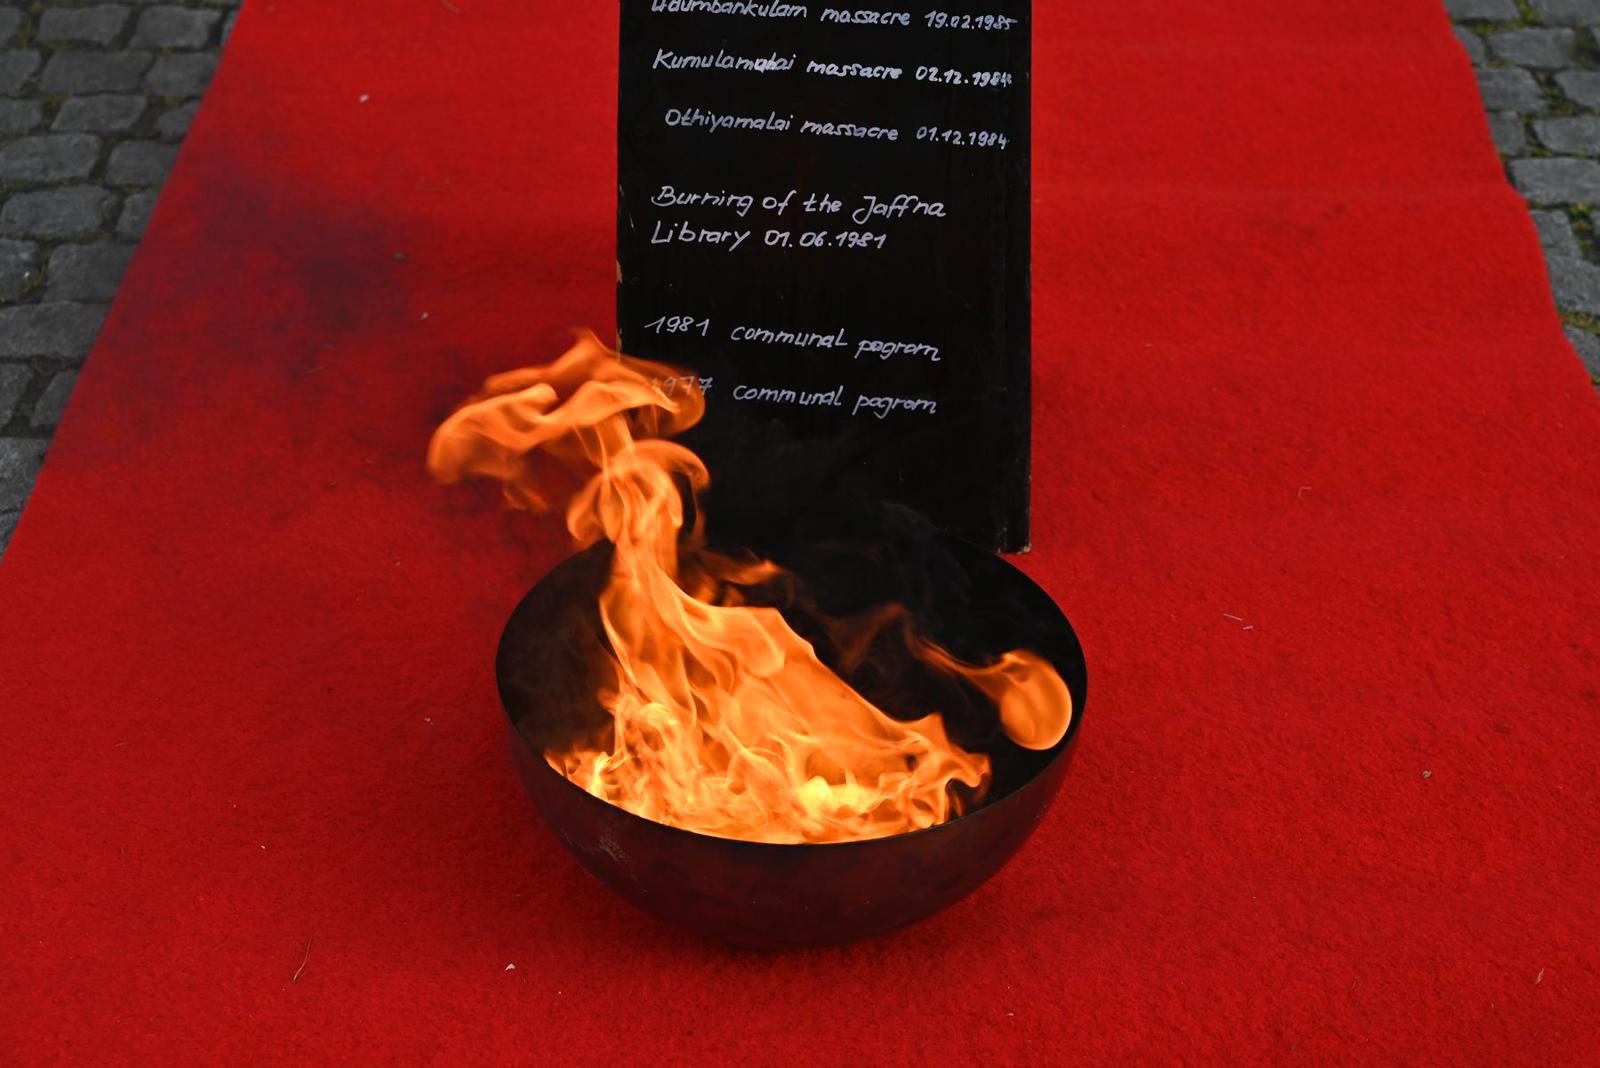 Udumbankulam massacre 19.02.1985
Kumulamalai massacre 02.12.1984
Othiyamalai massacre 01.12.1984
Burning of the Jaffna
Library 01.06.1981
1981 communal pogrom
1977 communal pogrom